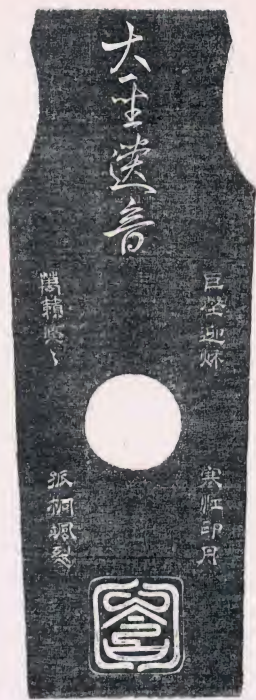 大聖遺音
巨壑迎秌
寒江印月
萬籟悠〻
孤桐颯裂
包含